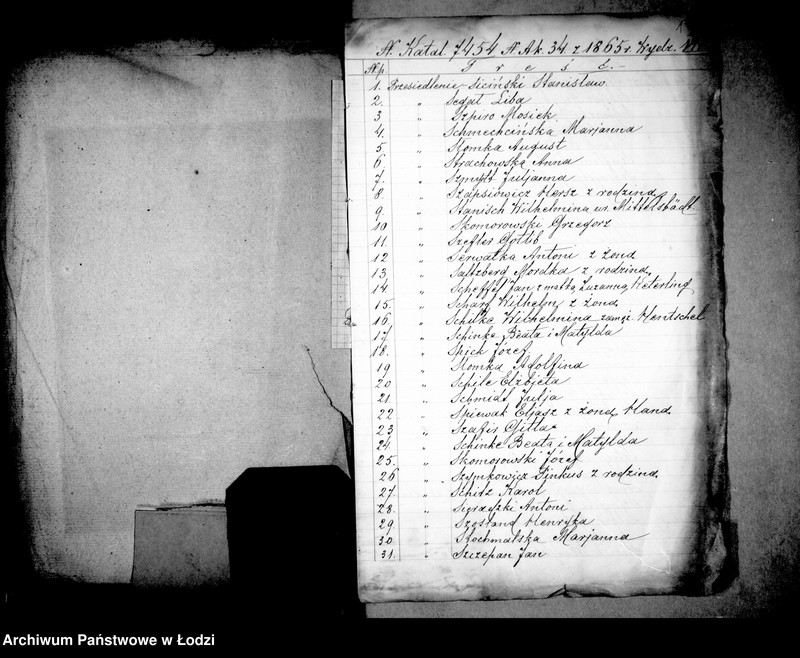 N. Katal. 7454 N Ak. 34 z 1865 r. Wydz.
N p. Treść.
1. Przesiedlenie Siciński Stanisław
2. „ Segał Liba
3 „ Szpiro Mosiek
4. „ Schmechcińska Marjanna
5 „ Słomka August
6 „ Strachowska Anna
7. „ Szmydt Juljanna
8 „ Szapsiowicz Hersz z rodziną
9 „ Stanisch Wilhelmina ur. Mittelstädt
10 „ Skomorowski Grzegorz
11. „ Szefler Gotlib
12 „ Serwatka Antoni z żoną
13 „ Saltzberg Mordka z rodziną
14 „ Scheffel Jan z matką Zuzanną Keterling
15 „ Scharf Wilhelm z żoną
16 „ Schilke Wilhelmina zamęż. Hentschel
17 „ Schinke Beata i Matylda
18. „ Józef
19 „ Słomka Adolfina
20 „ Schile Elżbieta
21. „ Schmidt Julja
22 „ Śpiewak Eljasz z żoną Haną
23 „ Szafir Gitla
24 „ Schinke Beata i Matylda
25. „ Skomorowski Józef
26 „ Szymkowicz Pinkus z rodziną
27. „ Schitz Karol
28. „ Antoni
29. „ Szosland Henryka
30 „ Stochmalska Marjanna
31. „ Szczepan Jan
Archiwum Państwowe w Łodzi